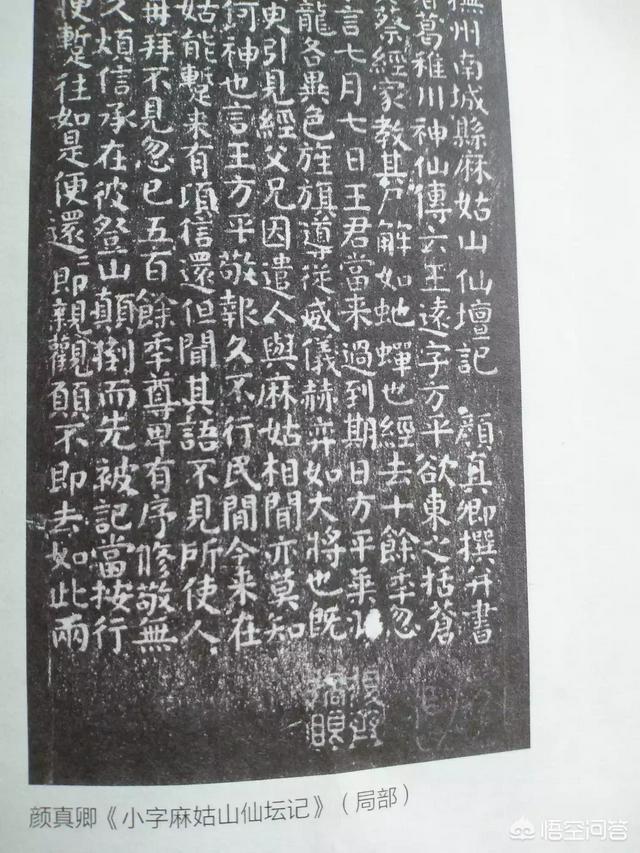 撫州南城縣麻姑山仙壇記 顏真卿撰并書
葛稚川神仙傳云王遠字方平欲東之括蒼
蔡經家教其尸解如虵蟬也經去十餘年忽
言七月七日王君當来過到期日方平乘
龍各異色旌旗導從威儀赫弈如大將也既
臾引見經父兄因遣人與麻姑相聞亦莫知
何神也言王方平敬報久不行民間今来在
姑能蹔来有頃信還但聞其語不見所使人
再拜不見忽已五百餘年尊卑有序修敬無
久煩信承在彼登山顛倒而先被記當按行
便蹔往如是便還〻即親覲願不即去如此兩
颜真卿《小字麻姑山仙坛记》（局部）
悟空问答